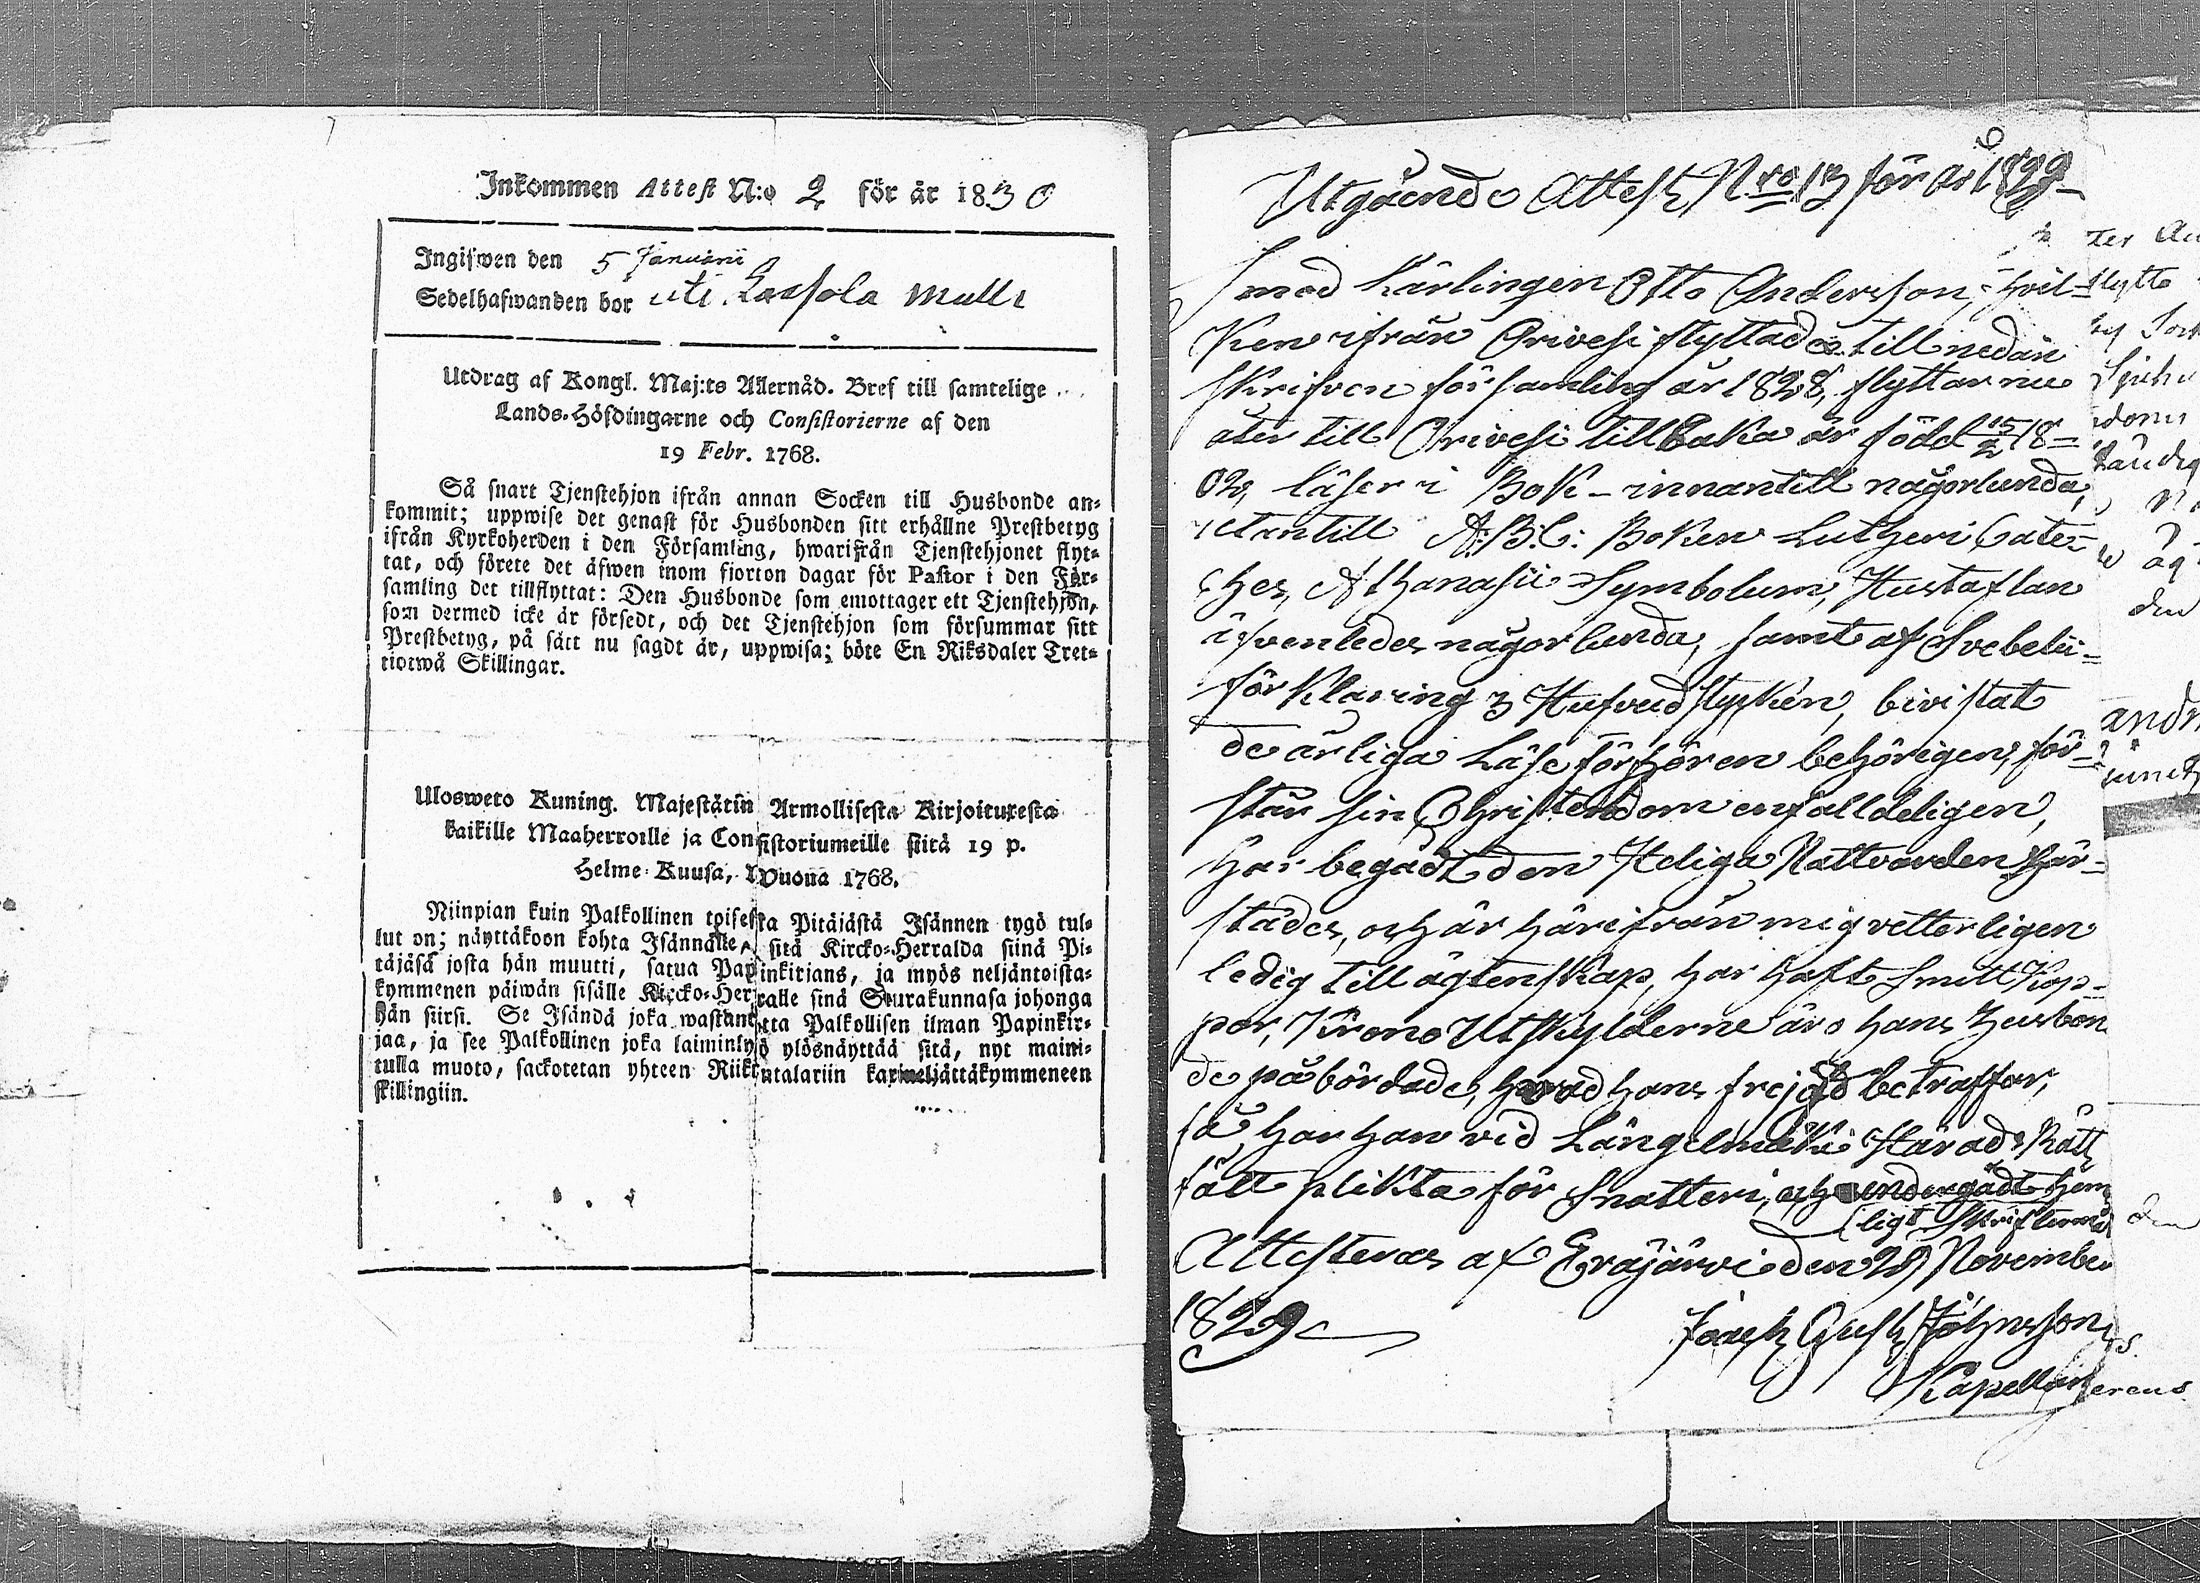 Inkommen Attest N:o 2 för år 1830
Ingifwen den 5 Januarii
Sedelhafwanden bor uti
Utdrag af Kongl. Maj:ts Allernåd. Bref till samtelige
Lands-Höfdingarne och Consistorierne af den
19 Febr. 1768.
Så snart Tjenstehjon ifrån annan Socken till Husbonde an-
kommit; uppwise det genast för Husbonden sitt erhållne Prestbetyg
ifrån Kyrkoherden i den Församling, hwarifrån Tjenstehjonet flyt-
tat, och förete det äfwen inom fjorton dagar för Pastor i den För-
samling det tillflyttat: Den Husbonde som emottager ett Tjenstehjon,
som dermed icke är försedt, och det Tjenstehjon som försummar sitt
Prestbetyg, på sätt nu sagdt är, uppwisa; böte En Riksdaler Tret-
tiotwå Skillingar.
Ulosweto Kuning. Majestätin Armollisesta Kirjoituxesta
kaikille Maaherroille ja Consistoriumeille siitä 19 p.
Helme-Kuusa, Wuona 1768.
Niinpian kuin Palkollinen toisesta Pitäjästä Isännen tygö tul-
lut on; näyttäkoon kohta Isännälle, sitä Kircko-Herralda siinä Pi-
täjäsä josta hän muutti, satua Papinkirjans, ja myös neljäntoista-
kymmenen päiwän sisälle Kircko-Herralle sinä Seurakunnasa johonga
hän siirsi. Se Isändä joka wastanotta Palkollisen ilman Papinkir-
jaa, ja see Palkollinen joka laiminlyö ylösnäyttää sitä, nyt maini-
tulla muoto, sackotetan yhteen Riikintalariin kaxineljättäkymmeneen
skillingiin.
Utgående Attest Nro 13 för år 1829
med Kärlingen Otto Andersson, hvil-
ken ifrån Orivesi flyttade till nedan
skrifven församling år 1828, flyttar nu
åter till Orivesi tillbaka är född 15/2 18=
02, läser i Bok innantill någorlunda,
utantill A:B:C: Boken Lutheri Cate=
ches, Athanasii Symbolum, Hustaflan
äfvenledes någorlunda, samt af Svebelii=
förklaring 3 Hufvudstycken, bivistat
de årliga Läseförhören behörigen, för=
står sin Christendom enfalldeligen,
har begådt den Heliga Nattvarden här=
städes, och är härifrån mig vetterligen
ledig till ägtenskap, har haft Smitt Kop-
por, Krono Utskylderne äro hans Husbon
de påbördade, hvad hans frejd beträffar,
så har han vid Längelmäki Härads Rätt
fått plikta för Snatteri, och undergådt hem
ligt Skriftermål
Attesteras af Eräjärvi den 29 November
1829
Johnsson
Kapellan